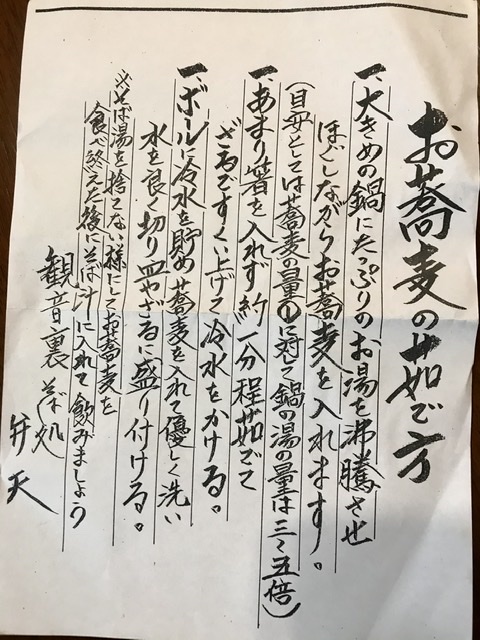 お蕎麦の茹で方
一、大きめの鍋にたっぷりのお湯を沸騰させ
ほどしながらお蕎麦を入れます。
(目安としては蕎麦の量①に対て鍋の湯の量は三〜五倍)
一、あまり箸を入れず約一分程茹でて
ざるですくい上げて冷水をかける。
一、ボールに冷水を貯め蕎麦を入れて優しく洗い
水を良く切り皿やざるに盛り付ける。
※そば湯を捨てない様にしてお蕎麦を
食べ終えた後にそば汁に入れて飲みましょう
観音裏そば処
弁天